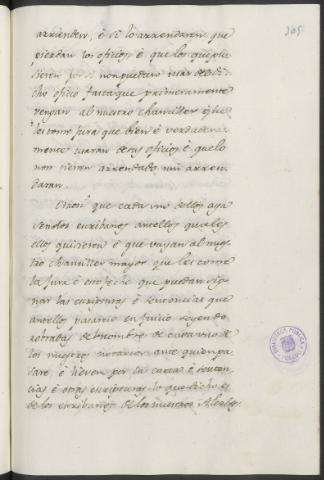 305
arrienden, è si lo arrendaren que
pierdan los oficios, è que los que pu
sieren por si non puedan usar de di
cho oficio fasta que primeramente
vengan al nuestro chanciller è que
les tome jura que bien è verdadera
mente usaran de sus oficios è que lo
non tienen arrendado nin arren
daran.
Otrosi que cada uno de ellos aya
senolos escribanos antellos quales
ellos quisieren è que vayan al nues
tro chanciller mayor que les tome
la jura è esto fecho que puedan sig
nar las escripturas è sentencias que
antellos pasaren en juicio seyendo
de cada uno de
los nuestros notarios ante quien pa
sare, è lieven por la carta è senten
cias è otras escripturas lo que dicho es
de los escribanos de los nuestros Alcaldes.
BIBLIOTECA PUBLICA
TOLEDO